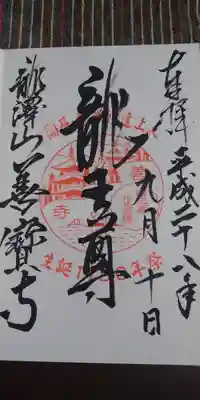 奉拝 平成二十八年
九月十日
龍王尊
龍澤山善寳寺